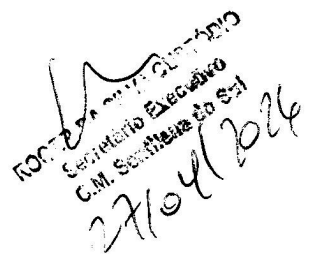 DA SILVA CUSTÓDIO
Secretário Executivo
C.M. Sentinela do Sul
27/04/2024